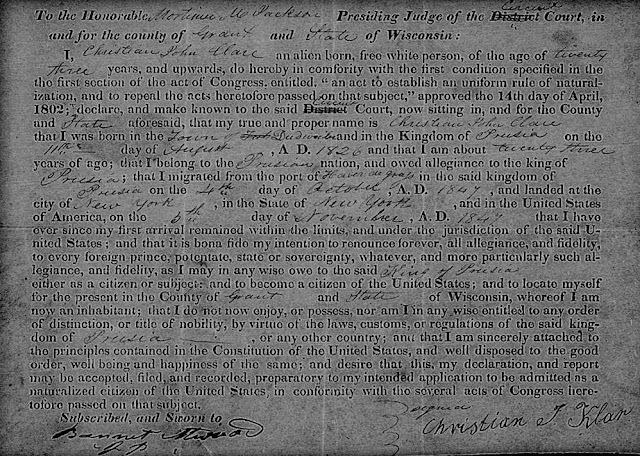 To the Honorable Mortimer M Jackson Presiding Judge of the District Circuit Court, in
and for the county of Grant and State of Wisconsin:
I, Christian John Clare an alien born, free white person, of the age of twenty
three years, and upwards, do hereby in comformity with the first condition specified in the
the first section of the act of Congress. entitled, "an act to establish an uniform rule of natural-
ization, and to repeal the acts heretofore passed on that subject," approved the 14th day of April,
1802; declare, and make known to the said District Circuit Court, now sitting in, and for the County
and State aforesaid, that my true and proper name is Christian John Clare
that I was born in the Town of and in the Kingdom of Prusia on the
11th day of August , A. D. 1826 and that I am about twenty three
years of age; that I belong to the Prusian nation, and owed allegiance to the king of
Prusia; that I migrated from the port of Haver de gras in the said kingdom of
Prusia on the 4th day of October , A. D. 1847, and landed at the
city of New York , in the State of New York , and in the United States
of America, on the 5th day of November , A. D. 1847 that I have
ever since my first arrival remained within the limits, and under the jurisdiction of the said U-
nited States; and that it is bona fide my intention to renounce forever, all allegiance, and fidelity,
to every foreign prince, potentate, state or sovereignty, whatever, and more particularly such al-
legiance, and fidelity, as I may in any wise owe to the said King of Prusia
either as a citizen or subject: and to become a citizen of the United States; and to locate myself
for the present in the County of Grant and State of Wisconsin, whereof I am
now an inhabitant; that I do not now enjoy, or possess, nor am I in any wise entitled to any order
of distinction, or title of nobility, by virtue of the laws, customs, or regulations of the said king-
dom of Prusia , or any other country; and that I am sincerely attached to
the principles contained in the Constitution of the United States, and well disposed to the good
order, well being and happiness of the same; and desire that this, my declaration, and report
may be accepted, filed, and recorded, preparatory to my intended application to be admitted as a
naturalized citizen of the United States, in conformity with the several acts of Congress here-
tofore passed on that subject.
Subscribed, and Sworn to
Christian J Klar
J P